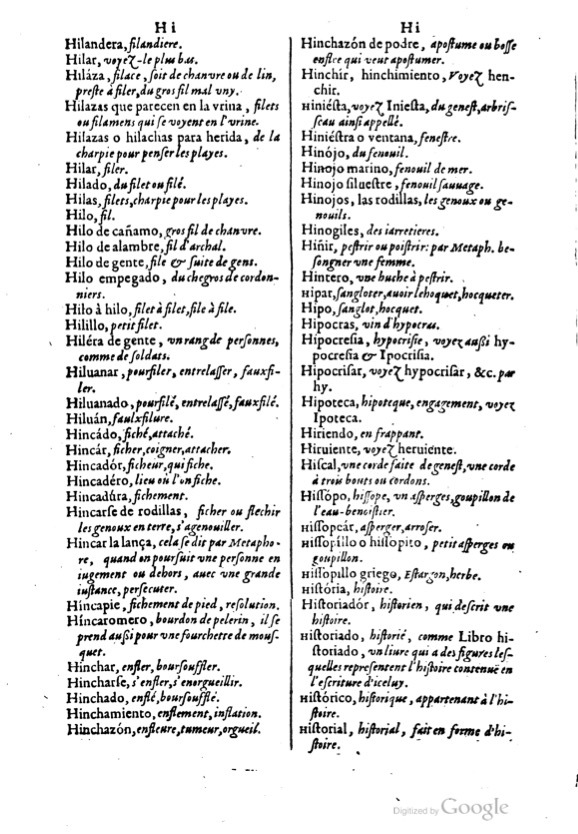 Hi
Hilandera, filandiere.
Hilar, voyez-le plus bas.
Hiláza, filace, soit de chanvre ou de lin,
preste à filer, du gros fil mal vny.
Hilazas que parecen en la vrina, filets
ou filamens qui se voyent en l'vrine.
Hilazas o hilachas para herida, de la
charpie pour penser les playes.
Hilar, filer.
Hilado, du filet ou filé.
Hilas, filets, charpie pour les playes.
Hilo, fil.
Hilo de cañamo, gros fil de chanvre.
Hilo de alambre, fil d'archal.
Hilo de gente, file & suite de gens.
Hilo empegado, du chegros de cordon-
niers.
Hilo à hilo, filet à filet, file à file.
Hilillo, petit filet.
Hiléra de gente, vn rang de personnes,
comme de soldats.
Hiluanar, pourfiler, entrelasser, fauxfi-
ler.
Hiluanado, pourfilé, entrelassé, fauxfilé.
Hiluán, faulxfilure.
Hincádo, fiché, attaché.
Hincár, ficher, coigner, attacher.
Hincadór, ficheur, qui fiche.
Hincadéro, lieu où l'on fiche.
Hincadúra, fichement.
Hincarse de rodillas, ficher ou flechir
les genoux en terre, s'agenouiller.
Hincar la lança, cela se dit par Metapho-
re, quand on poursuit vne personne en
iugement ou dehors, auec vne grande
instance, persecuter.
Híncapie, fichement de pied, resolution.
Híncaromero, bourdon de pelerin, il se
prend aussi pour vne fourchette de mous-
quet.
Hinchar, enfler, boursouffler.
Hincharse, s'enfler, s'enorgueillir.
Hinchado, enflé, boursoufflé.
Hinchamiento, enflement, inflation.
Hinchazón, enfleure, tumeur, orgueil.
Hi
Hinchazón de podre, apostume ou bosse
enflee qui veut apostumer.
Hinchír, hinchimiento, Voyez hen-
chir.
Hiniésta, voyez Iniesta, du genest, arbris-
seau ainsi appellé.
Hiniéstra o ventana, fenestre.
Hinójo, du fenouil.
Hinojo marino, fenouil de mer.
Hinojo siluestre, fenouil sauuage.
Hinojos, las rodillas, les genoux ou ge-
nouils.
Hinogiles, des iarretieres.
Hiñir, pestrir ou poistrir: par Metaph. be-
songner vne femme.
Hintero, vne huche à pestrir.
Hipar, sangloter, auoir le hoquet, hocqueter.
Hipo, sanglot, hocquet.
Hipocras, vin d'hypocras.
Hipocresia, hypocrisie, voyez aussi hy-
pocresia & Ipocrisia.
Hipocrisar, voyez hypocrisar, &c. par
hy.
Hipoteca, hipoteque, engagement, voyez
Ipoteca.
Hiriendo, en frappant.
Hiruiente, voyez heruiente.
Hiscal, vne corde faite de genest, vne corde
à trois bouts ou cordons.
Hissópo, hissope, vn asperges, goupillon de
l'eau-benoistier.
Hissopeár, asperger, arroser.
Hissopíllo o hissopito, petit asperges ou
goupillon.
Hissopillo griego, Estargon, herbe.
História, histoire.
Historiadór, historien, qui descrit vne
histoire.
Historiado, historié, comme Libro hi-
storiado, vn liure qui a des figures les-
quelles representent l'histoire contenuë en
l'escriture d'iceluy.
Histórico, historique, appartenant à l'hi-
stoire.
Historial, historial, fait en forme d'hi-
stoire.
Digitized by Google